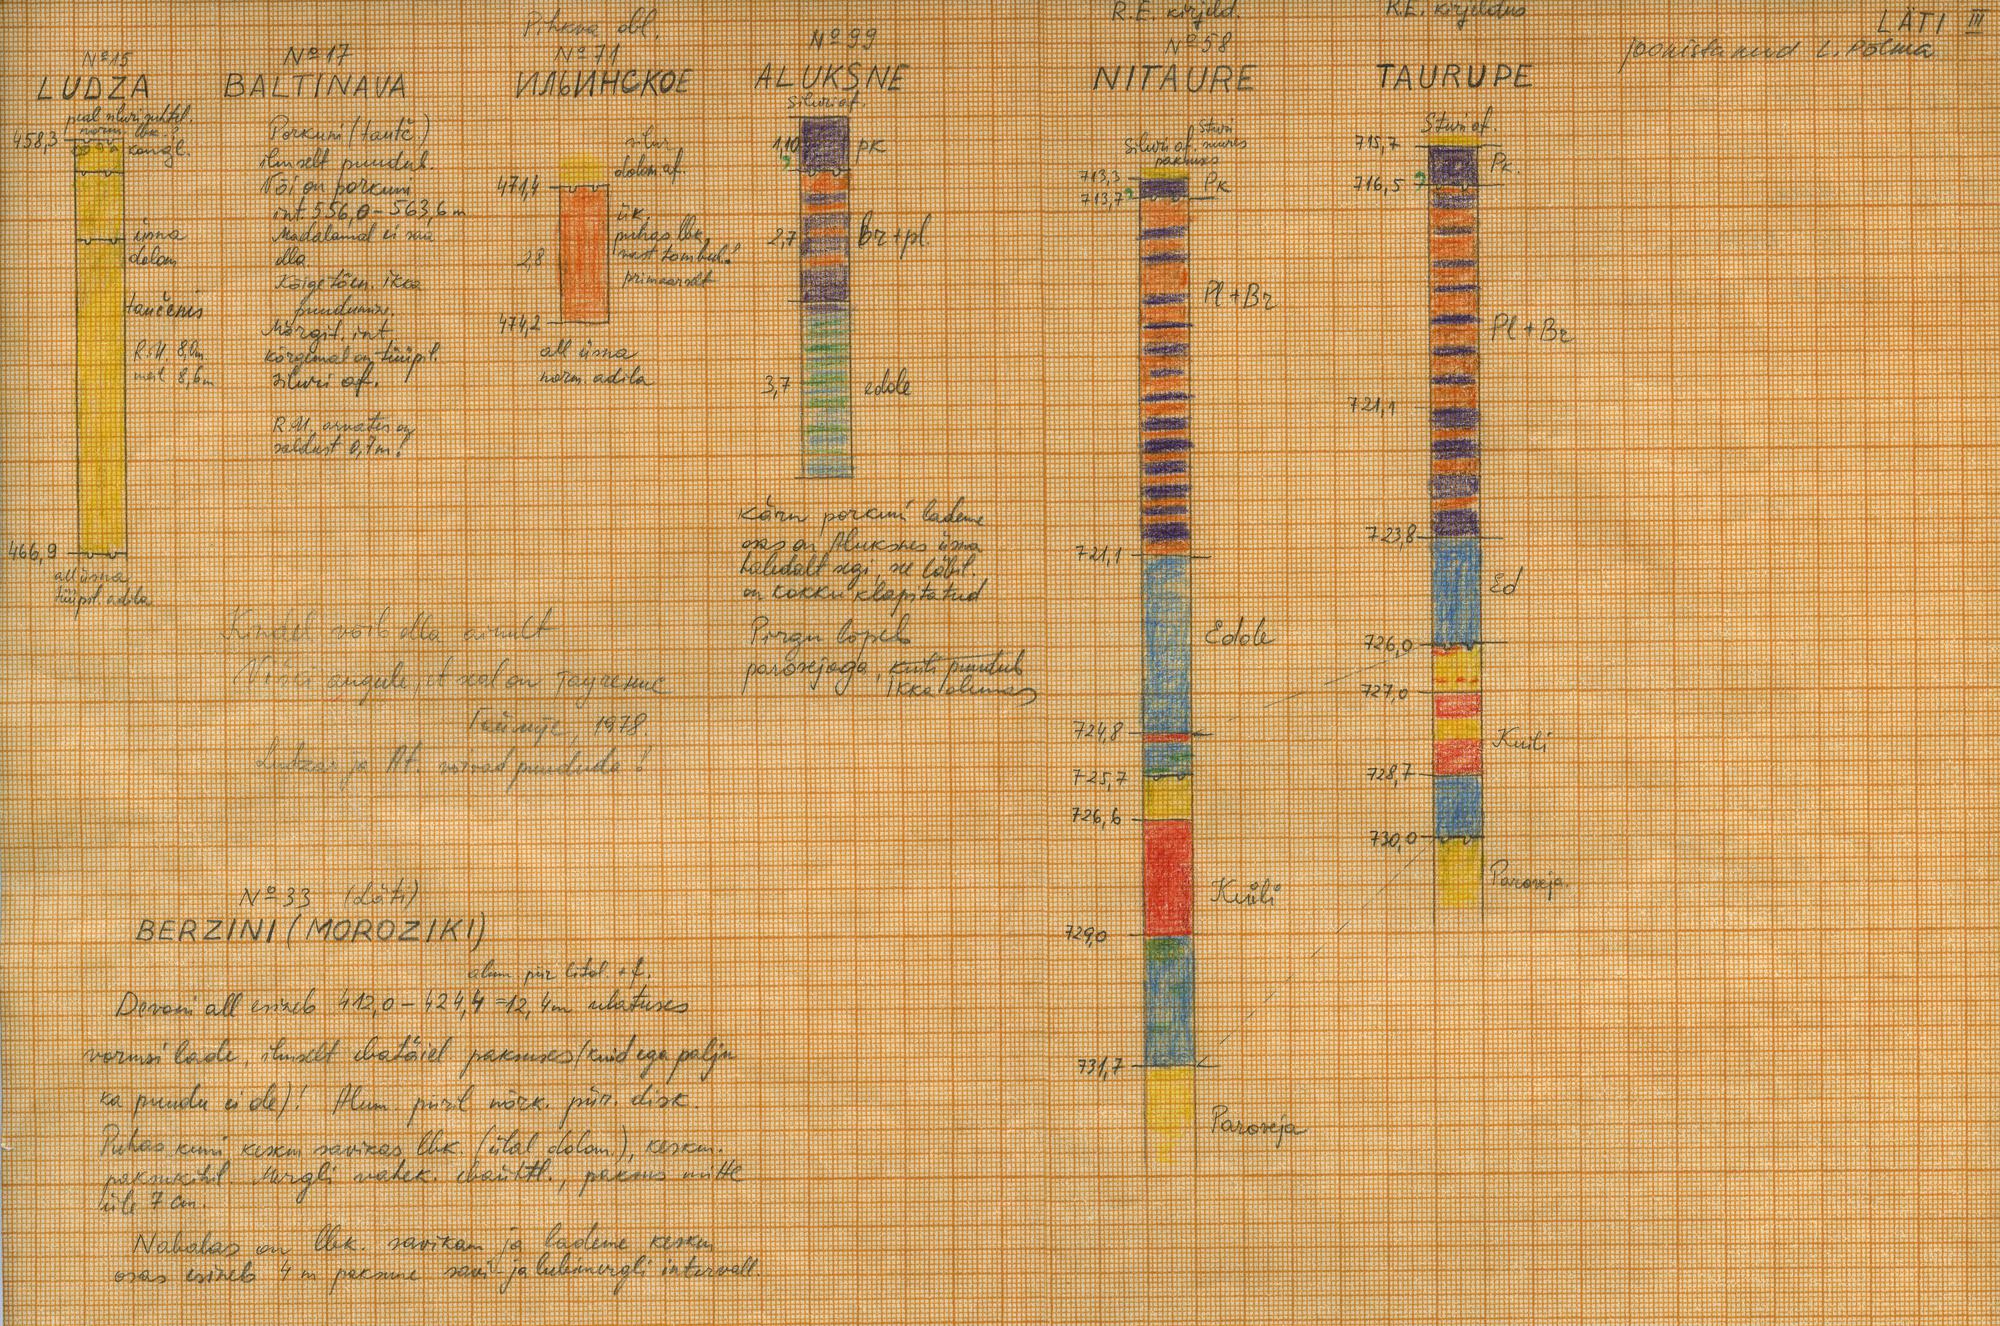 LÄTI III
joonistanud L. Põlma
Nº 15
LUDZA
458,3
kongl.
üsna
dolom
taučenis
R.M. 8,0m
meil 8,6m
466,9
all üsna
tüüpil. adila
Nº 17
BALTINAVA
Porkuni (tauč.)
ilmselt puudub.
Või on porkuni
int. 556,0 – 563,6 m
Madalamal ei saa
olla
Kõige tõen. ikka
puudumine.
Märgit. int.
kõrgemal on tüüpil.
siluri af.
R.M. arvates on
saldust 0,7m!
Pihkva obl.
Nº 71
ИЛЬИНСКОЕ
silur
dolom. af.
471,4
ük.
puhas lbk,
primaarselt
2,8
474,2
all üsna
norm. adila
Nº 99
ALUKSNE
siluri af.
1,10
?
pk
2,7
Br + pl.
3,7
edole
Kärn porkuni lademe
osas on Aluksnes üsna
halvdalt segi, see läbil.
on kokku klapitatud
Pirgu lõpeb
parovejaga, kuili puudub
ikka olemas
R.E. kirjeld.
Nº 58
NITAURE
siluri af. suures
paksuses
713,3
713,7
?
Pk
Pl + Br
721,1
Edole
724,8
725,7
726,6
Kuili
729,0
731,7
Paroveja
R.E. kirjeldus
TAURUPE
Siluri af.
715,7
Pk.
716,5
?
Pl + Br
721,1
723,8
Ed
726,0
727,0
Kuili
728,7
730,0
Paroveja.
Kindel võib olla ainult
Višķi augule, et seal on
1978.
Ludzas ja Al. võivad puududa!
Nº 33 (Läti)
BERZINI (MOROZIKI)
alum. piir litol. + f.
Devoni all esineb 412,0 – 424,4 = 12,4m ulatuses
vormsi lade, ilmselt ebatäiel. paksuses (kuid ega palju
ka puudu ei ole)! Alum. piiril nõrk. pür. disk.
Puhas kuni keskm savikas lbk. (ülal dolom.), keskm.
paksukihil. Mergli vahek. ebaühtl., paksus mitte
üle 7 cm.
Nabalas on lbk. savikam ja lademe keskm
osas esineb 4 m paksune savi- ja lubimergli intervall.